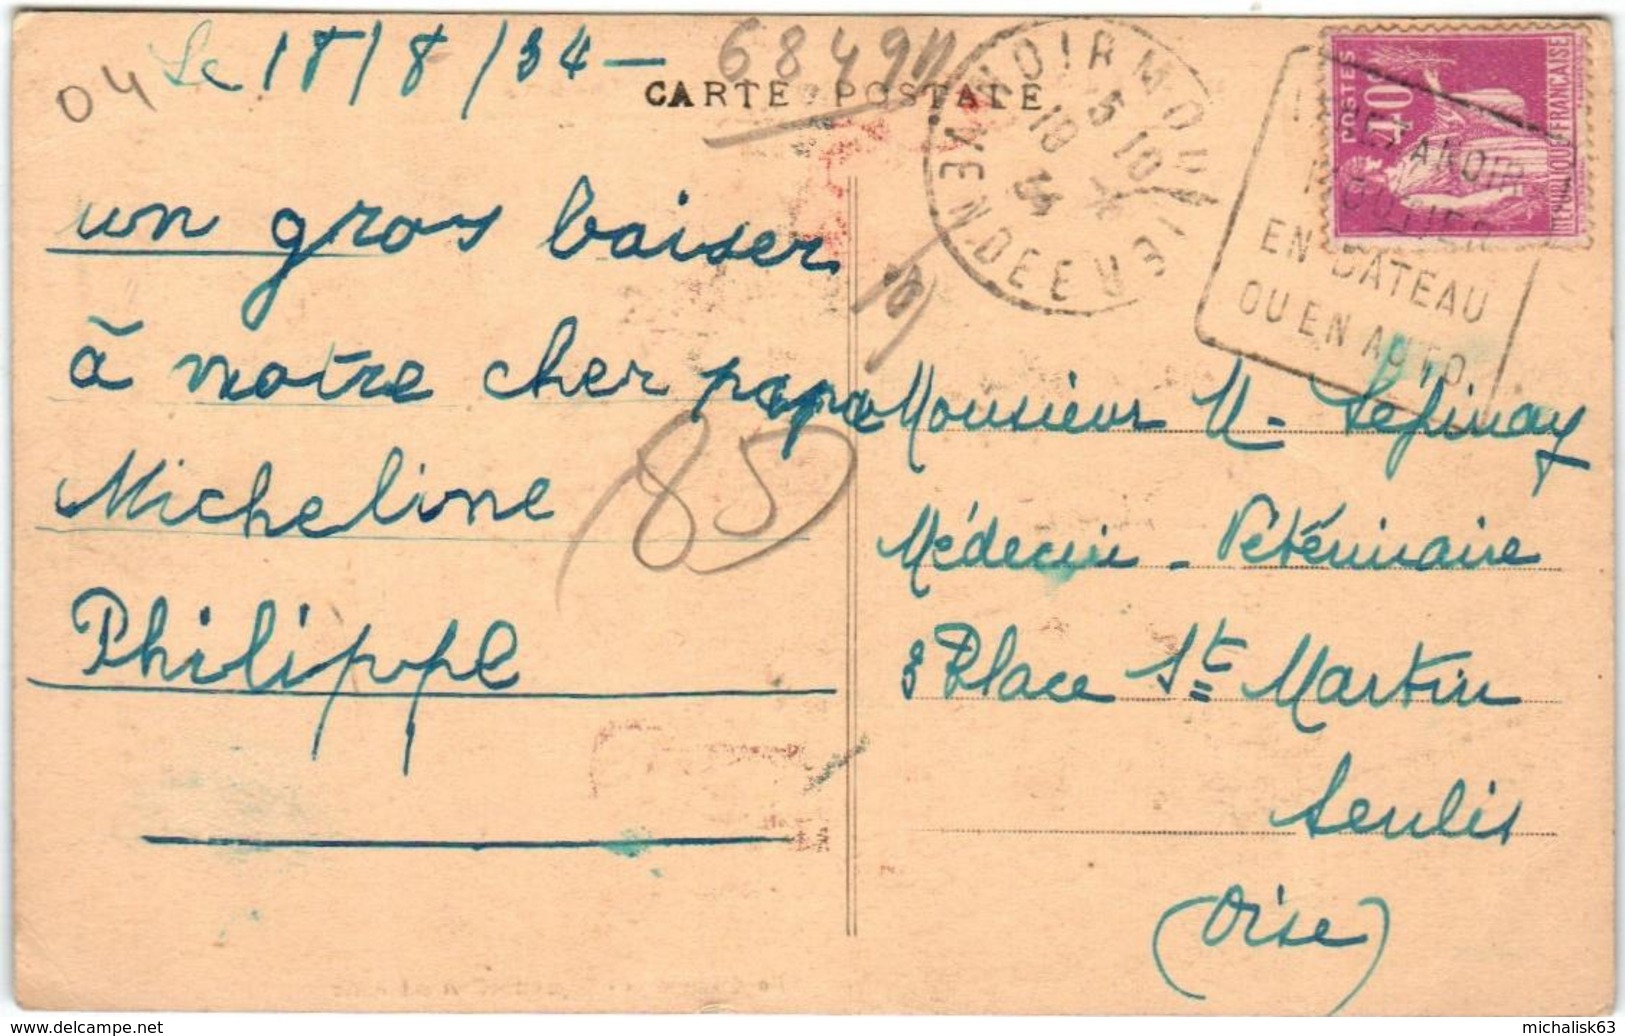 04
Le 18/8/34 -
6849
CARTE POSTALE
un gros baiser
à notre cher papa
Micheline
Philippe
85
NOIRMOUTIER
VENDEE
15 10
18
34
POSTES
40c
REPUBLIQUE FRANÇAISE
NOIR
MOUTIER
EN BATEAU
OU EN AUTO
Monsieur M. Lefinay
Médecin - Vétérinaire
3 Place St Martin
Senlis
(Oise)
www.delcampe.net
michalisk63